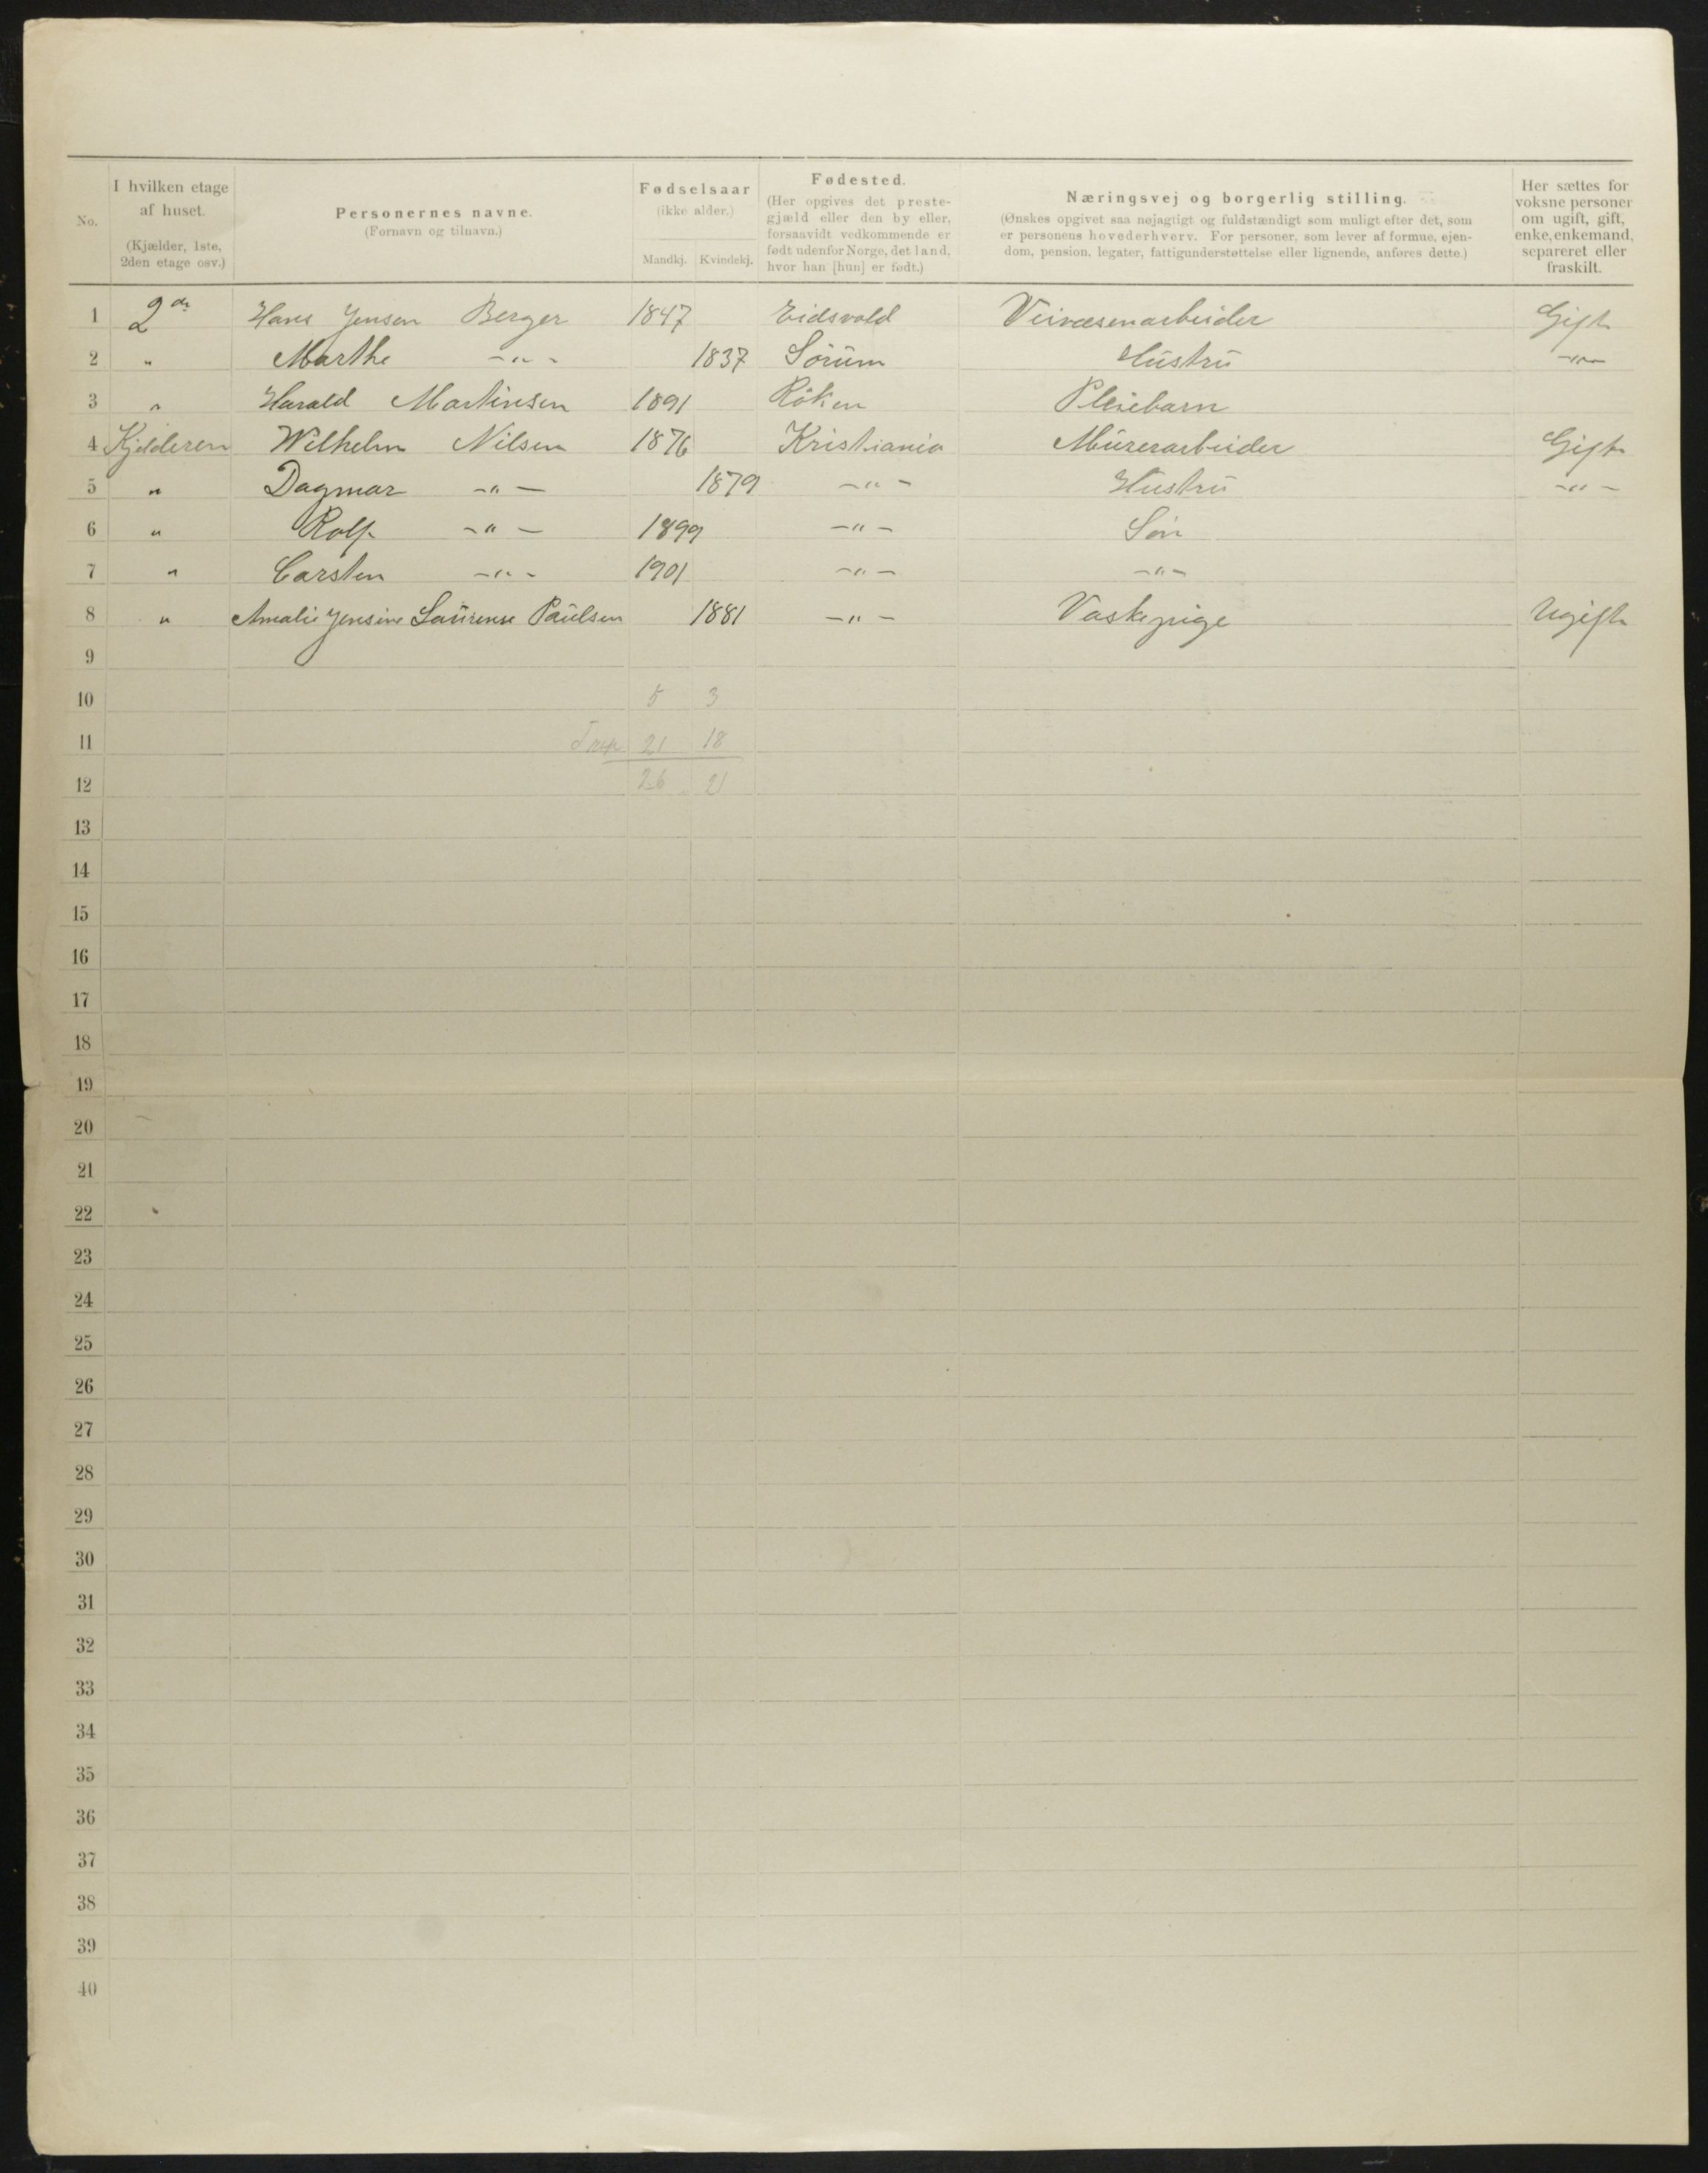 No.
I hvilken etage
af huset.
(Kjælder, 1ste,
2den etage osv.)
Personernes navne.
(Fornavn og tilnavn.)
Fødselsaar
(ikke alder.)
Mandkj. Kvindekj.
Fødested.
(Her opgives det preste-
gjæld eller den by eller,
forsaavidt vedkommende er
født udenfor Norge, det land,
hvor han [hun] er født.)
Næringsvej og borgerlig stilling.
(Ønskes opgivet saa nøjagtigt og fuldstændigt som muligt efter det, som
er personens hovederhverv. For personer, som lever af formue, ejen-
dom, pension, legater, fattigunderstøttelse eller lignende, anføres dette.)
Her sættes for
voksne personer
om ugift, gift,
enke, enkemand,
separeret eller
fraskilt.
1 2den Hans Jensen Berger 1847 Eidsvold Veivæsenarbeider Gift
2 " Marthe -"- 1837 Sörum Hustru -"-
3 " Harald Martinsen 1891 Röken Pleiebarn
4 Kjelderen Wilhelm Nilsen 1876 Kristiania Murerarbeider Gift
5 " Dagmar -"- 1879 -"- Hustru -"-
6 " Rolf -"- 1899 -"- Søn
7 " Carsten -"- 1901 -"- -"-
8 " Amalie Jensine Laurense Paulsen 1881 -"- Vaskepige Ugift
9
10 5 3
11 21 18
12 26 21
13
14
15
16
17
18
19
20
21
22
23
24
25
26
27
28
29
30
31
32
33
34
35
36
37
38
39
40